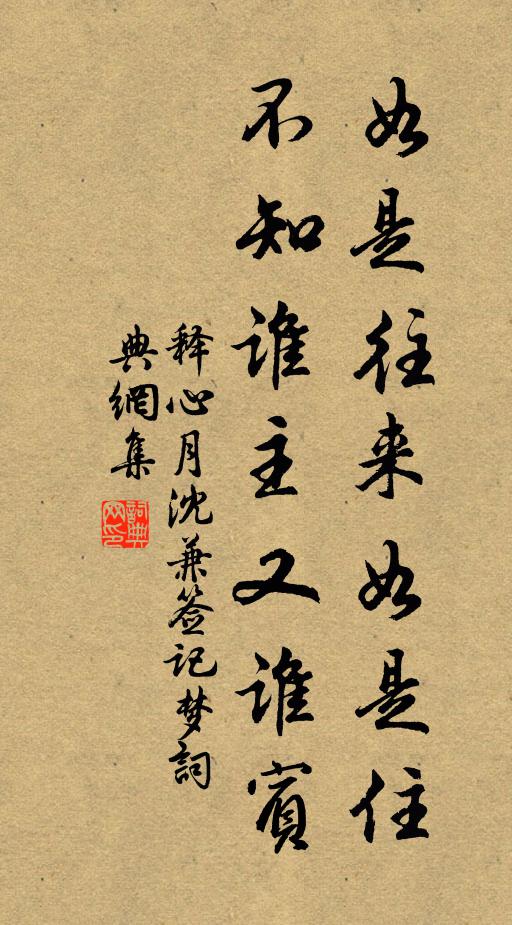 如是往来如是住
不知谁主又谁賓
释心月沈兼签记梦詞
典網集
詞典
网印